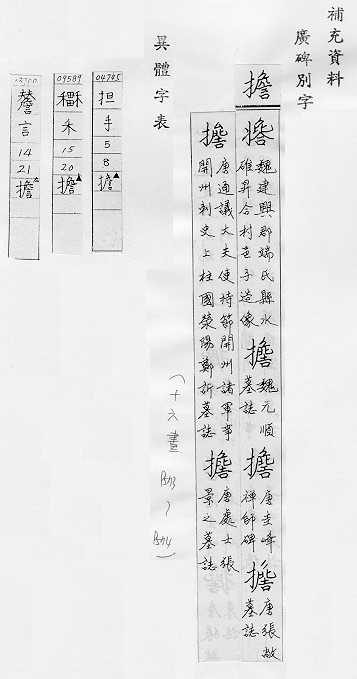 補充資料
廣碑別字
擔
魏建興郡端氏縣水
碓昇合村邑子造像
擔
魏元順
墓誌
擔
唐圭峰
禪師碑
擔
唐張敖
墓誌
擔
唐通議大夫使持節開州諸軍事
開州刺史上柱國滎陽鄭訢墓誌
擔
唐處士張
景之墓誌
(十六畫
異體字表
04795
担
手
5
8
擔▲
09589
禾
15
20
擔▲
言
14
21
擔